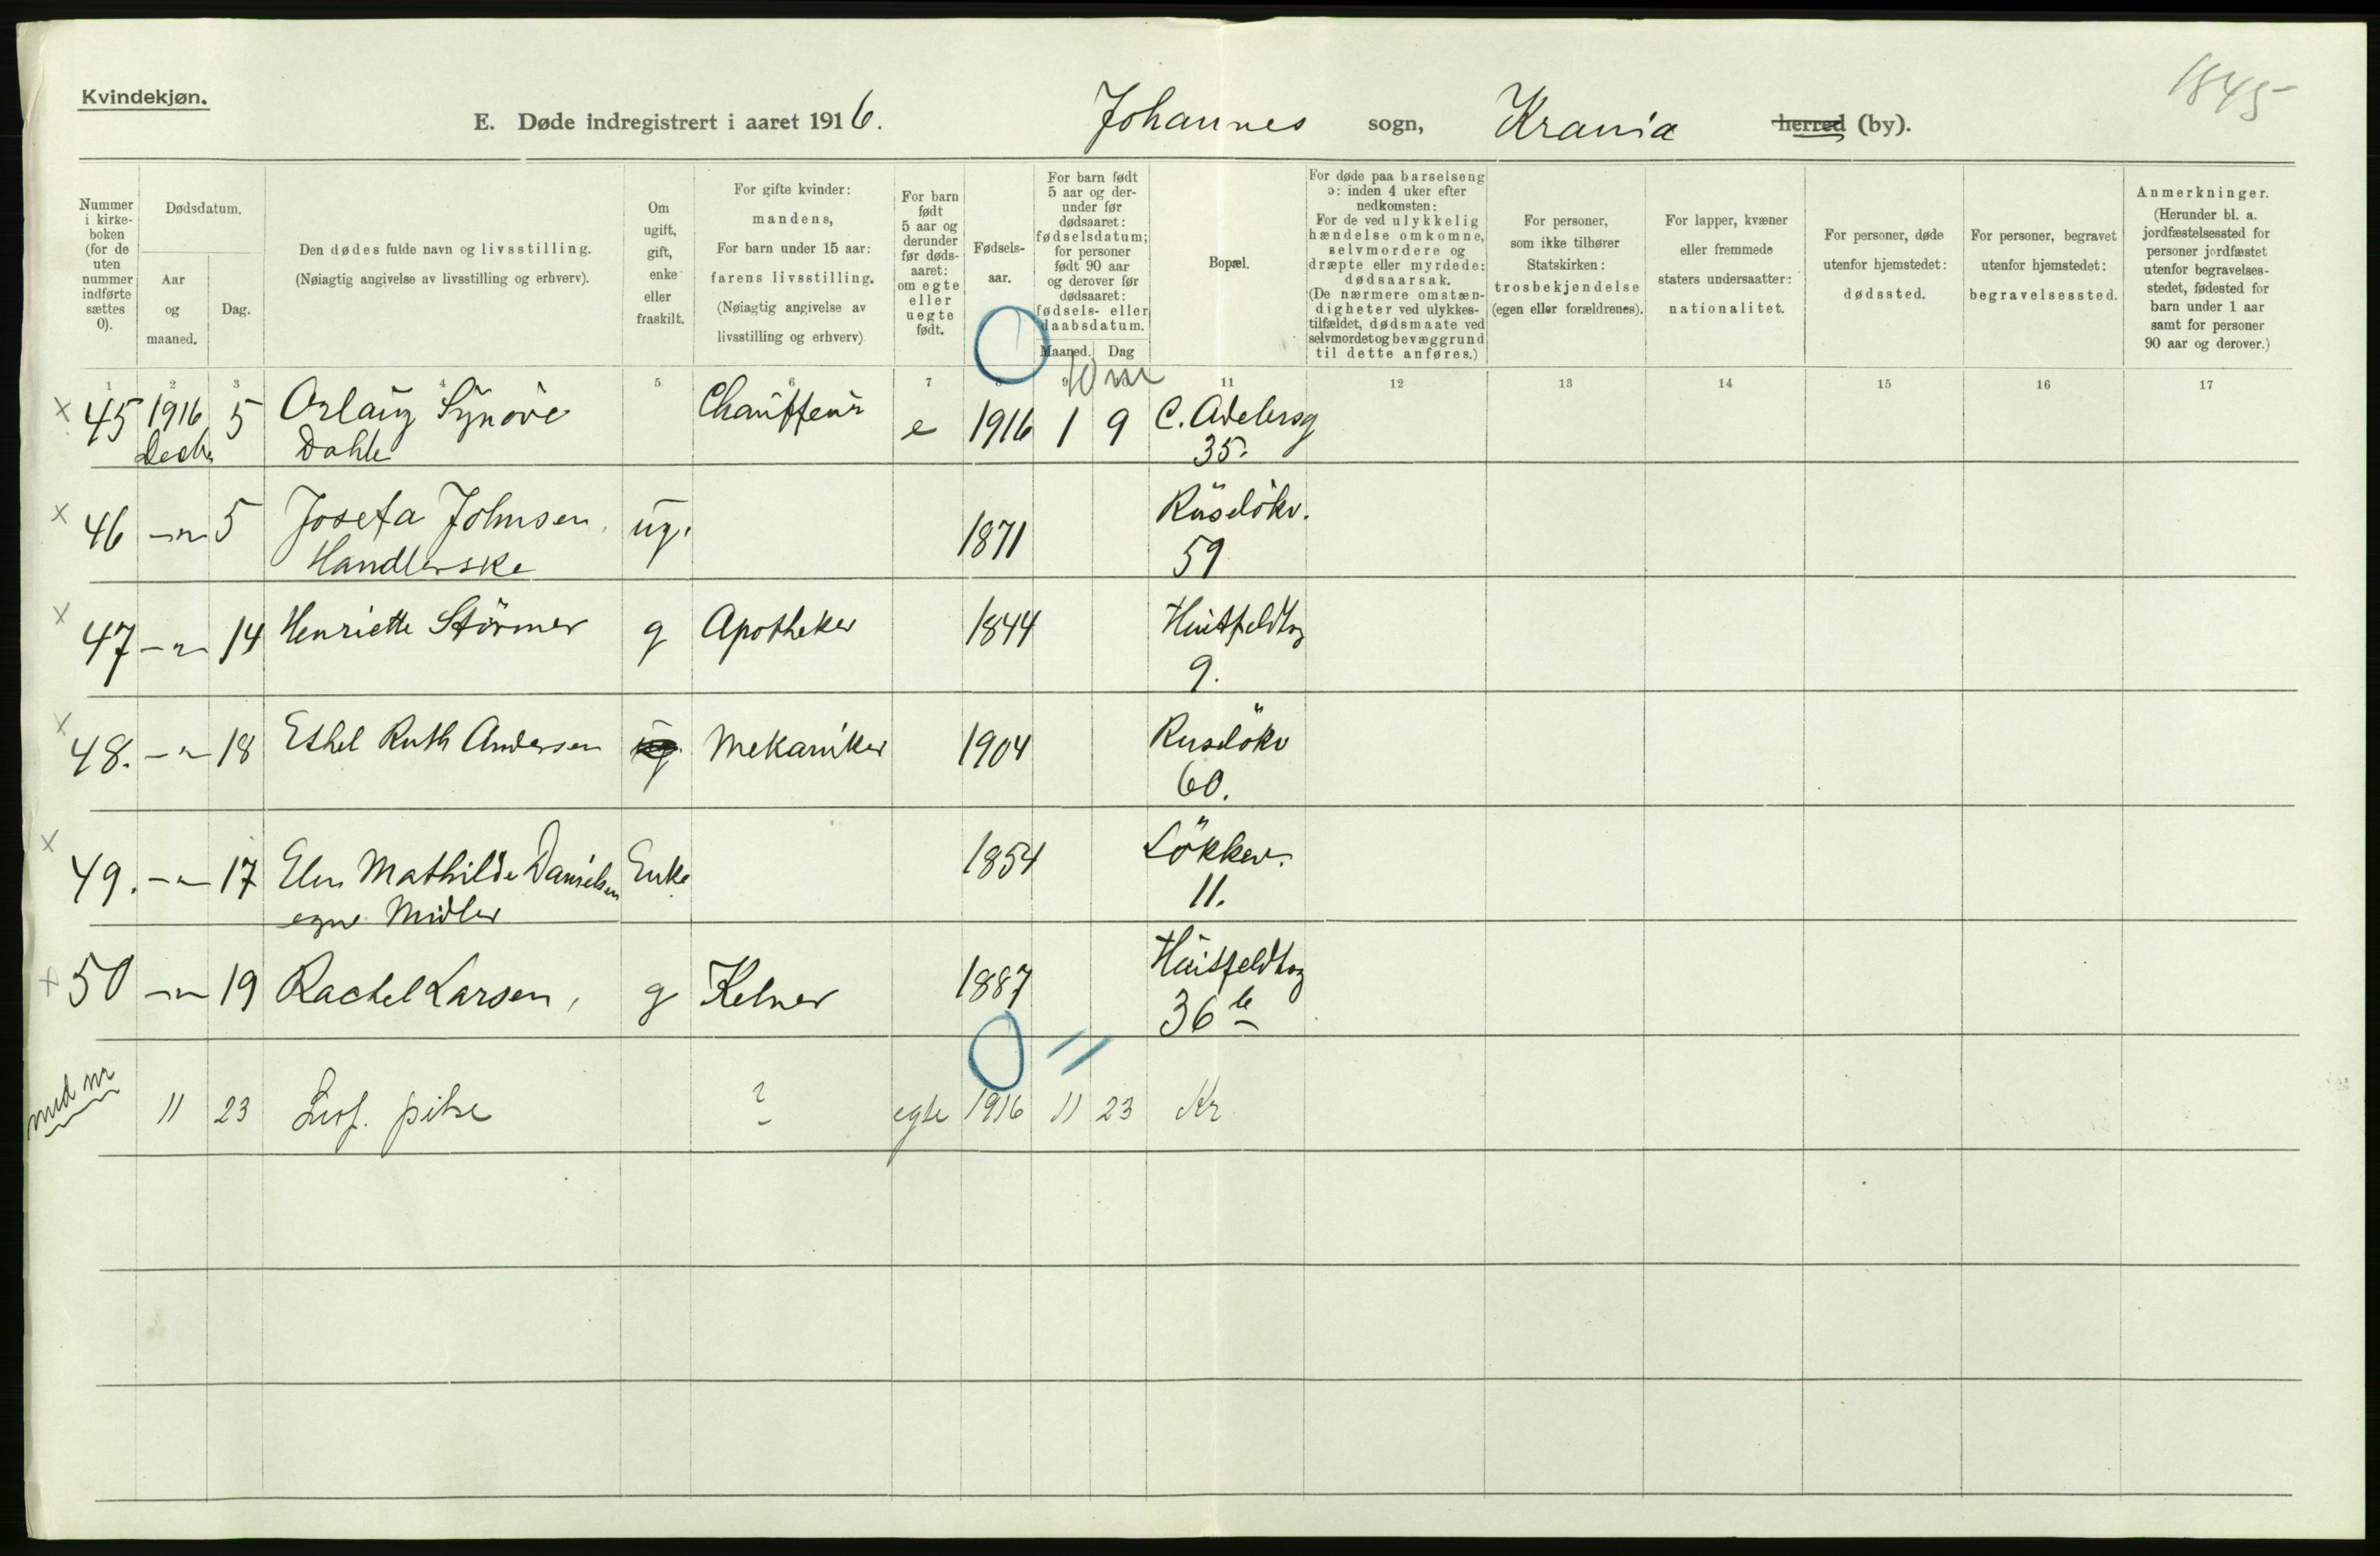 Kvindekjøn.
1845
E. Døde indregistrert i aaret 1916. Johannes sogn, Krania herred (by).
Nummer i kirkeboken (for de uten nummer indførte sættes 0).
Dødsdatum.
Aar og maaned.
Dag.
Den dødes fulde navn og livsstilling.
(Nøiagtig angivelse av livsstilling og erhverv).
Om ugift, gift, enke eller fraskilt.
For gifte kvinder: mandens, For barn under 15 aar: farens livsstilling. (Nøiagtig angivelse av livsstilling og erhverv)
For barn født 5 aar og derunder før dødsaaret: om egte eller uegte født.
Fødselsaar.
For barn født 5 aar og derunder før dødsaaret: fødselsdatum; for personer født 90 aar og derover før dødsaaret: fødsels- eller daabsdatum.
Maaned. Dag
Bopæl.
For døde paa barselseng ɔ: inden 4 uker efter nedkomsten: For de ved ulykkelig hændelse omkomne, selvmordere og dræpte eller myrdede: dødsaarsak. (De nærmere omstændigheter ved ulykkestilfældet, dødsmaate ved selvmordet og bevæggrund til dette anføres.)
For personer, som ikke tilhører Statskirken: trosbekjendelse (egen eller forældrenes).
For lapper, kvæner eller fremmede staters undersaatter: nationalitet.
For personer, døde utenfor hjemstedet: dødssted.
For personer, begravet utenfor hjemstedet: begravelsessted.
Anmerkninger. (Herunder bl. a. jordfæstelsessted for personer jordfæstet utenfor begravelsesstedet, fødested for barn under 1 aar samt for personer 90 aar og derover.)
1 2 3 4 5 6 7 8 9 10 m 11 12 13 14 15 16 17
x 45 1916 Decb. 5 Orlaug Synöve Chauffeur e 1916 1 9 C. Adelersg
Dahle 35.
x 46 -"- 5 Josefa Johnsen, ug. 1871 Rüselökv.
Handlerske 59
x 47 -"- 14 Henriette Störmer g Apotheker 1844 Huitfeldtsg
9.
x 48. -"- 18 Ethel Ruth Andersen ug. Mekaniker 1904 Ruselökv
60.
x 49. -"- 17 Elen Mathilde Danielsen Enke 1854 Lökkev.
egne Midler 11.
x 50 -"- 19 Rachel Larsen, g Kelner 1887 Huitfeldtsg
36 b
11 23 pike ? egte 1916 11 23 Kr.